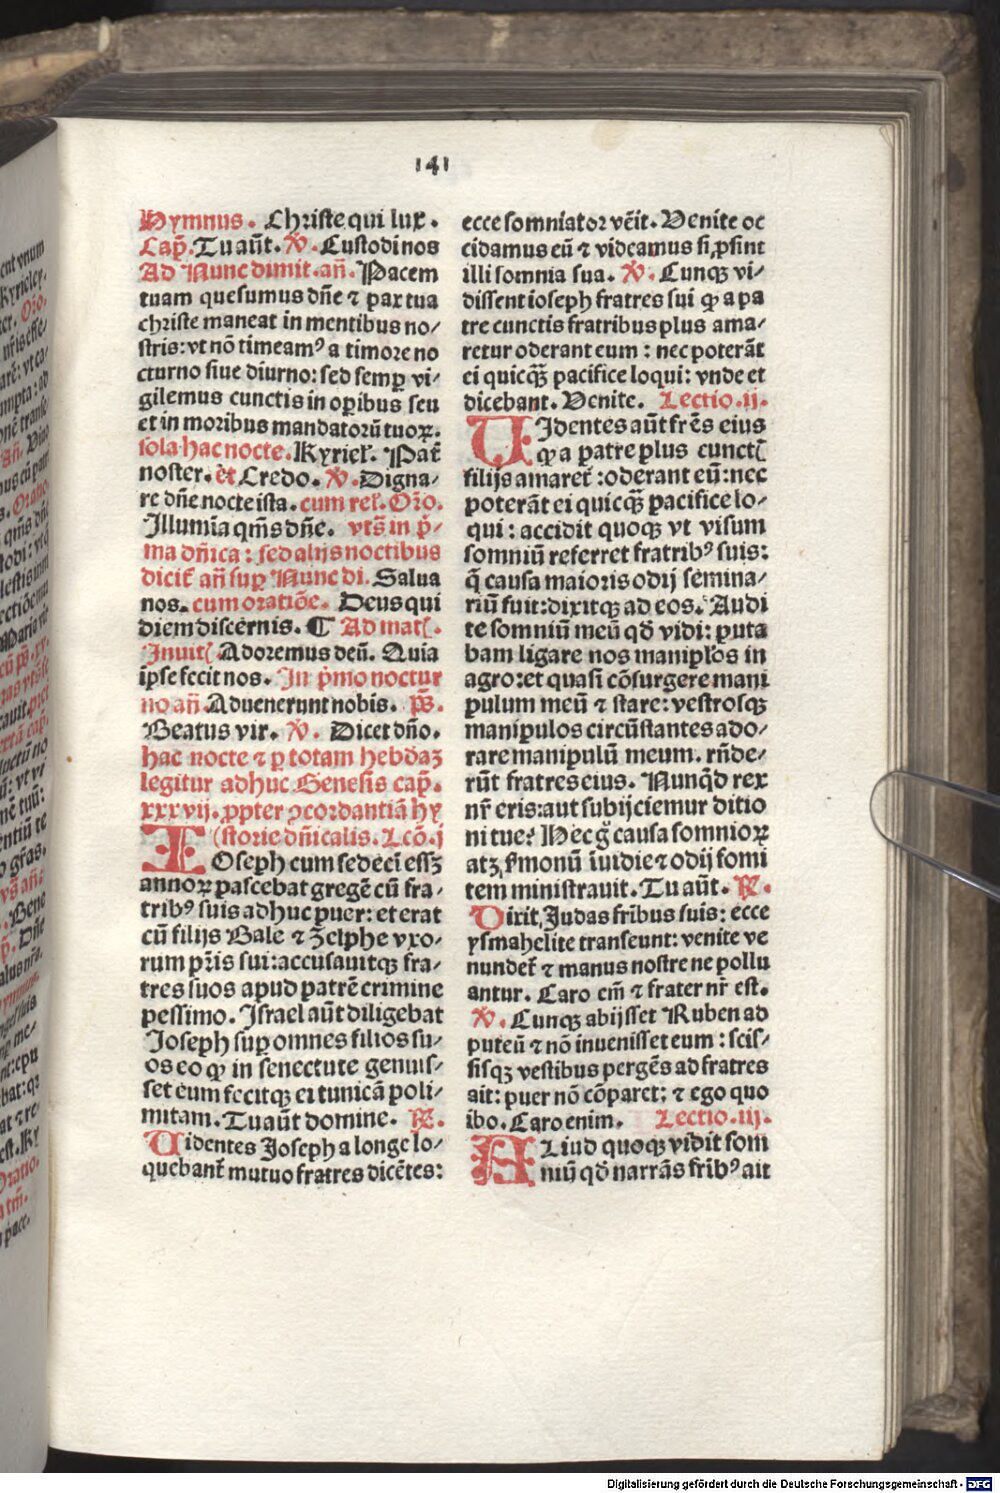 141
Hymnus. Christe qui lux.
Cap̄. Tu aūt. ℣. Custodi nos
Ad Nunc dimit. añ. Pacem
tuam quesumus dñe ⁊ pax tua
christe maneat in mentibus no/
stris: vt nō timeamꝰ a timore no
cturno siue diurno: sed semꝑ vi/
gilemus cunctis in oꝑibus seu
et in moribus mandatorū tuoꝝ.
sola hac nocte. Kyriel̄. Pat̄
noster. et Credo. ℣. Digna/
re dñe nocte ista. cum rel̄. Orō.
Illumīa qm̄s dñe. vts̄ in p̄/
ma dñica: sed alijs noctibus
dicit̄ añ suꝑ Nunc di. Salua
nos. cum oratiōe. Deus qui
diem discernis. ¶ Ad mat̄.
Inuit̄ Adoremus deū. Quia
ipse fecit nos. In p̄mo noctur
no añ. Aduenerunt nobis. p̄s.
Beatus vir. ℣. Dicet dño.
hac nocte ⁊ ꝑ totam hebdaꝫ
legitur adhuc Genesis cap̄.
xxxvij. ꝓpter ꝯcordantiā hy
(storie dñicalis. Lcō. j
IOseph cum sedecī esꝫ
annoꝝ pascebat gregē cū fra/
tribꝰ suis adhuc puer: et erat
cū filijs Bale ⁊ Zelphe vxo/
rum pr̄is sui: accusauitqꝫ fra/
tres suos apud patrē crimine
pessimo. Israel aūt diligebat
Ioseph suꝑ omnes filios su/
os eo ꝙ in senectute genuis/
set eum fecitqꝫ ei tunicā poli/
mitam. Tu aūt domine. ℟.
Uidentes Ioseph a longe lo/
quebant̄ mutuo fratres dicētes:
ecce somniator vēit. Venite oc
cidamus eū ⁊ videamus si ꝓsint
illi somnia sua. ℣. Cunqꝫ vi/
dissent ioseph fratres sui ꝙ a pa
tre cunctis fratribus plus ama/
retur oderant eum: nec poterāt
ei quicqꝫ̄ pacifice loqui: vnde et
dicebant. Venite. Lectio. ij.
UIdentes aūt fr̄es eius
ꝙ a patre plus cunct̄
filijs amaret̄: oderant eū: nec
poterāt ei quicqꝫ̄ pacifice lo/
qui: accidit quoqꝫ vt visum
somniū referret fratribꝰ suis:
q̄ causa maioris odij semina/
riū fuit: dixitqꝫ ad eos. Audi
te somniū meū qđ vidi: puta
bam ligare nos manip̄los in
agro: et quasi cōsurgere mani
pulum meū ⁊ stare: vestrosqꝫ
manipulos circūstantes ado/
rare manipulū meum. rn̄de/
rūt fratres eius. Nunqđ rex
nr̄ eris: aut subijciemur ditio
ni tue? Hec g̊ causa somnioꝝ
atqꝫ ẜmonū īuidie ⁊ odij fomi
tem ministrauit. Tu aūt. ℟.
Dixit Iudas fr̄ibus suis: ecce
ysmahelite transeunt: venite ve
nundet̄ ⁊ manus nostre ne pollu
antur. Caro em̄ ⁊ frater nr̄ est.
℣. Cunqꝫ abijsset Ruben ad
puteū ⁊ nō inuenisset eum: scis/
sisqꝫ vestibus pergēs ad fratres
ait: puer nō cōparet: ⁊ ego quo
ibo. Caro enim. Lectio. iij.
ALiud quoqꝫ vidit som
niū qđ narrās fr̄ibꝰ ait
Digitalisierung gefördert durch die Deutsche Forschungsgemeinschaft - DFG